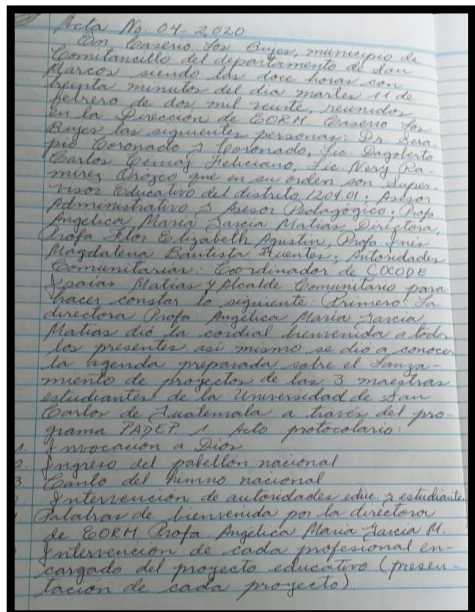 Acta No. 04-2,020
En Caserio Los Bujes, municipio de
Comitancillo del departamento de San
Marcos siendo las doce horas con
treinta minutos del dia martes 11 de
febrero de dos mil veinte, reunidos
en la Dirección de EORM Caserio Los
Bujes las siguientes personas: Dr. Sera-
pio Coronado y Coronado, Lic Dagoberto
Carlos Feliciano, Lic Nery Ra-
mirez Orozco que en su orden son Super-
visor Educativo del distrito 120401, Asesor
Administrativo y Asesor Pedagógico, Profa
Angélica María García Matías, Directora,
Profa Flor Elizabeth Agustín, Profa Inés
Magdalena Bautista Fuentes, Autoridades
Comunitarias: Coordinador de COCODE
Isaias Matías y Alcalde Comunitario para
hacer constar lo siguiente: Primero: La
directora Profa Angélica María García
Matías dió la cordial bienvenida a todos
los presentes así mismo se dio a conocer
la agenda preparada sobre el lanza-
miento de proyectos de las 3 maestras
estudiantes de la Universidad de San
Carlos de Guatemala a través del pro-
grama PADEP 1. Acto protocolario:
1. Invocación a Dios
2 Ingreso del pabellón nacional
3 Canto del himno nacional
Intervención de autoridades educ. y estudiantes
Palabras de bienvenida por la directora
de EORM Profa Angélica María García M.
Intervención de cada profesional en-
cargado del proyecto educativo (presen-
tación de cada proyecto).